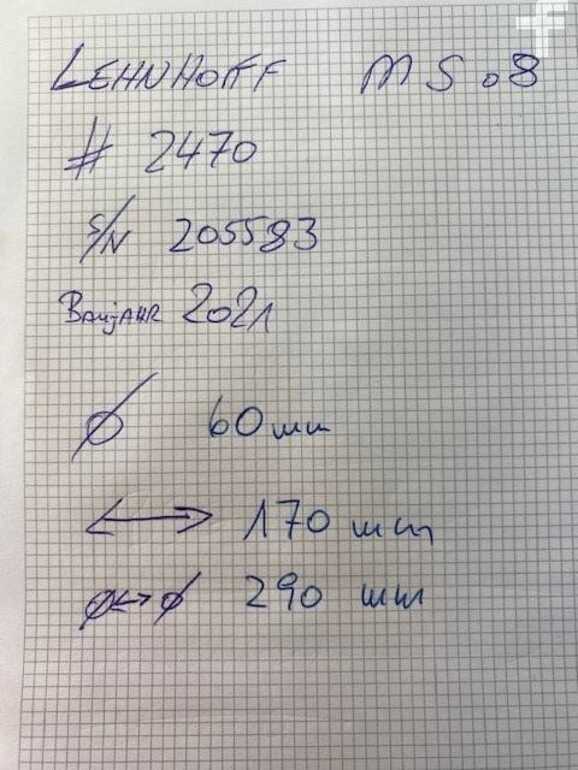 LEHNHOFF MS 08
# 2470
S/N 205583
BAUJAHR 2021
⌀ 60mm
↔ 170 mm
⌀↔⌀ 290 mm